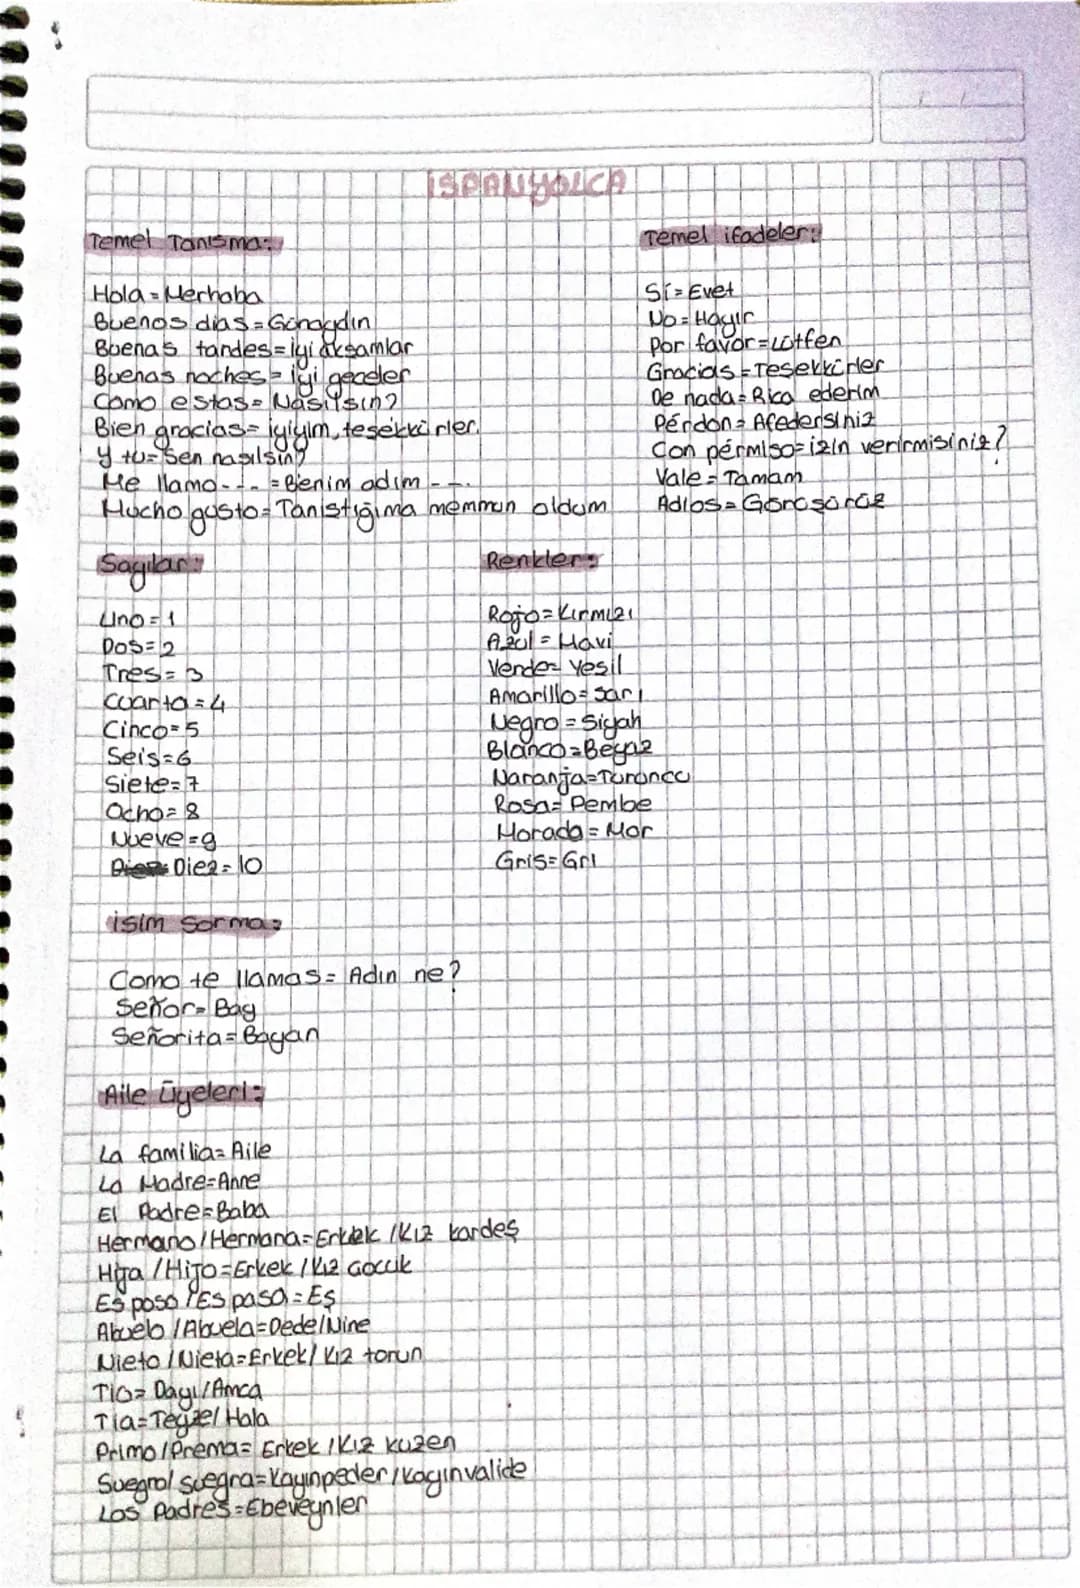 İSPANYOLCA
Temel Tanısma:
Hola = Merhaba
Buenos dias = Günaydın
Buenas tandes = iyi aksamlar
Buenas noches = iyi geceler
Como estas = Nasılsın?
Bien gracias = iyiyim, tesekkürler.
Y tu = Sen nasılsın?
Me llamo --- = Benim adım ---.
Mucho gusto = Tanıstığıma memnun oldum
Temel ifadeler:
Sí = Evet
No = Hayır
Por favor = Lütfen
Gracias = Tesekkürler
De nada = Rica ederim
Pérdon = Afedersiniz
Con pérmiso = izin verirmisiniz?
Vale = Tamam
Adios = Görüsürüz
Sayılar:
Uno = 1
Dos = 2
Tres = 3
Cuarta = 4
Cinco = 5
Seis = 6
Siete = 7
Ocho = 8
Nueve = 9
Diez = 10
Renkler:
Rojo = Kırmızı
Azul = Mavi
Verde = Yesil
Amarillo = Sarı
Negro = Siyah
Blanco = Beyaz
Naranja = Turuncu
Rosa = Pembe
Morada = Mor
Gris = Gri
isim Sorma:
Como te llamas = Adın ne?
Señor = Bay
Señorita = Bayan
Aile Üyeleri:
La familia = Aile
La Madre = Anne
El Padre = Baba
Hermano / Hermana = Erkek / Kız kardeş
Hija / Hijo = Erkek / Kız Çocuk
Esposo / Espasa = Eş
Abuelo / Abuela = Dede / Nine
Nieto / Nieta = Erkek / Kız torun
Tio = Dayı / Amca
Tia = Teyze / Hala
Primo / Prema = Erkek / Kız kuzen
Suegro / Suegra = Kayınpeder / Kayınvalide
Los Padres = Ebeveynler